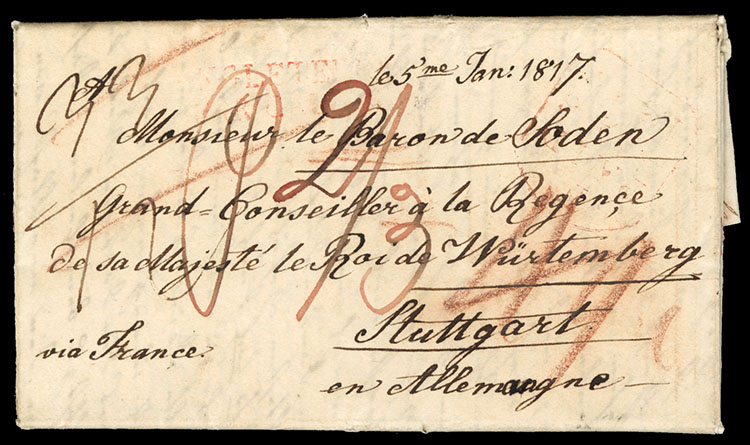 le 5me Jan: 1817.
A
Monsieur le Baron de Soden
Grand=Conseiller à la Regençe
de sa Majesté le Roi de Würtemberg
Stuttgart
via France.
en Allemangne